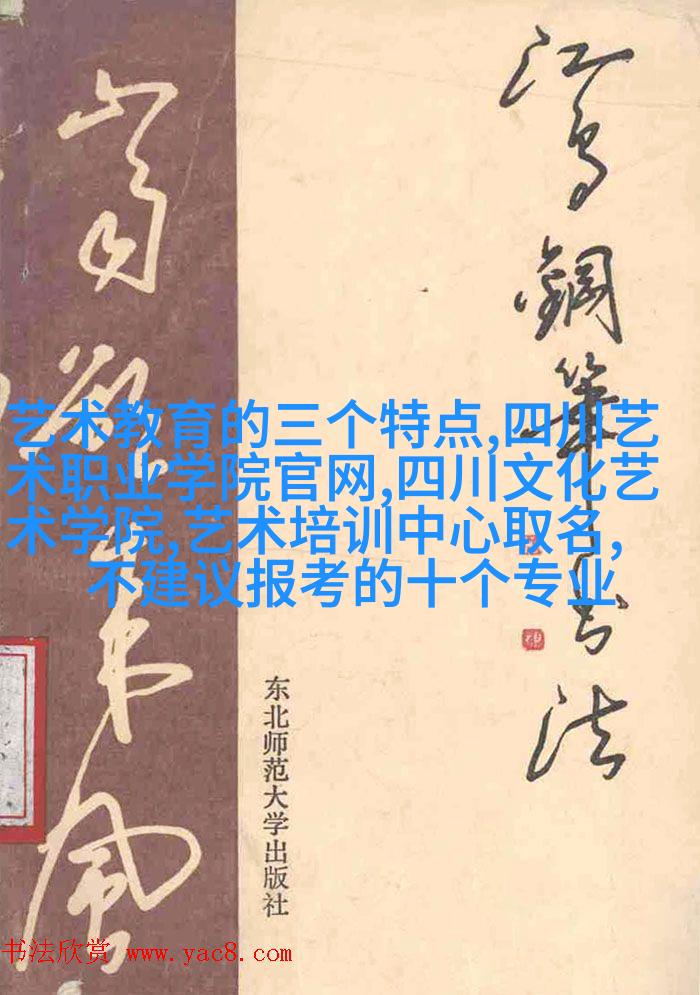 江鸟鋼筆书法
山雨欲来風
艺术教育的三个特点,四川艺
术职业学院官网,四川文化艺
术学院,艺术培训中心取名,
不建议报考的十个专业
东北师范大学出版社
书法欣赏 www.yac8.com